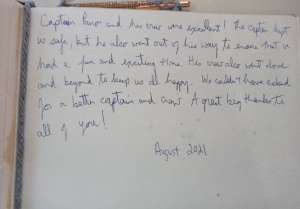 Captain and his crew were excellent! The captain kept
us safe, but he also went out of his way to ensure that we
had a fun and exciting time. His crew also went above
and beyond to keep us all happy. We couldn't have asked
for a better captain and crew. A great big thanks to
all of you!
August 2021